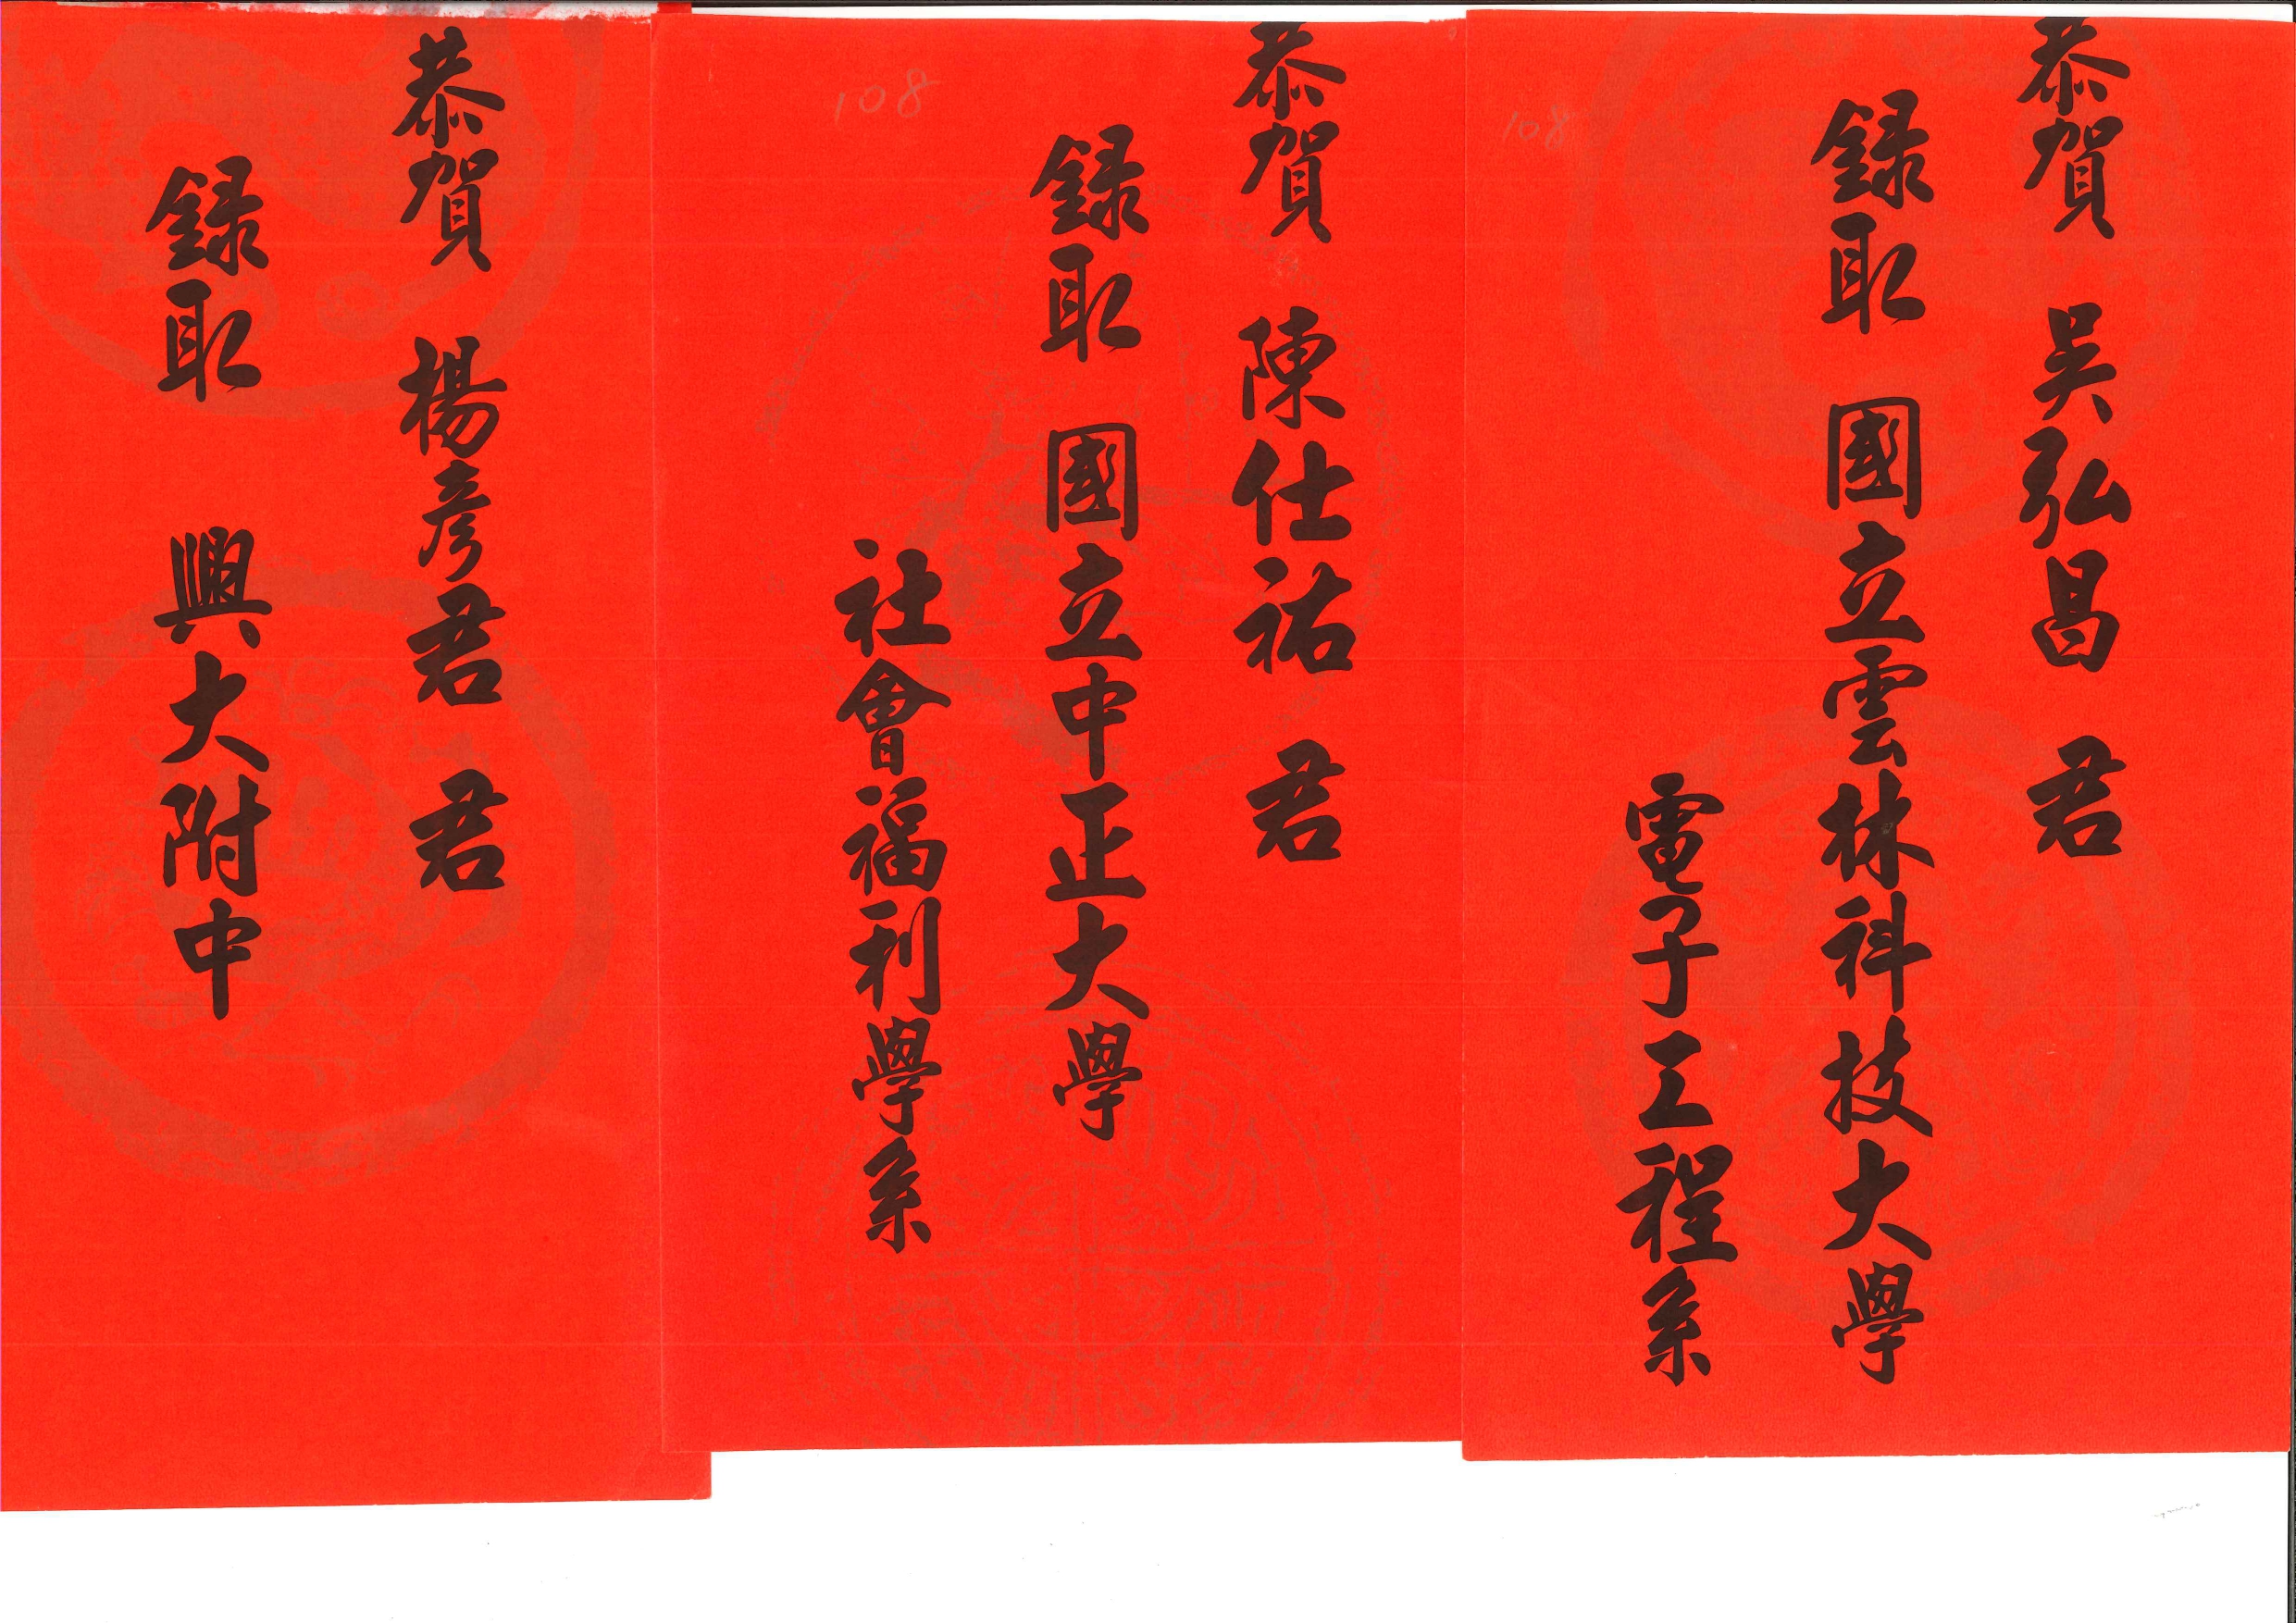 恭賀 吳弘昌 君
錄取 國立雲林科技大學
電子工程系
108
恭賀 陳仕祐 君
錄取 國立中正大學
社會福利學系
108
恭賀 楊彥君 君
錄取 興大附中